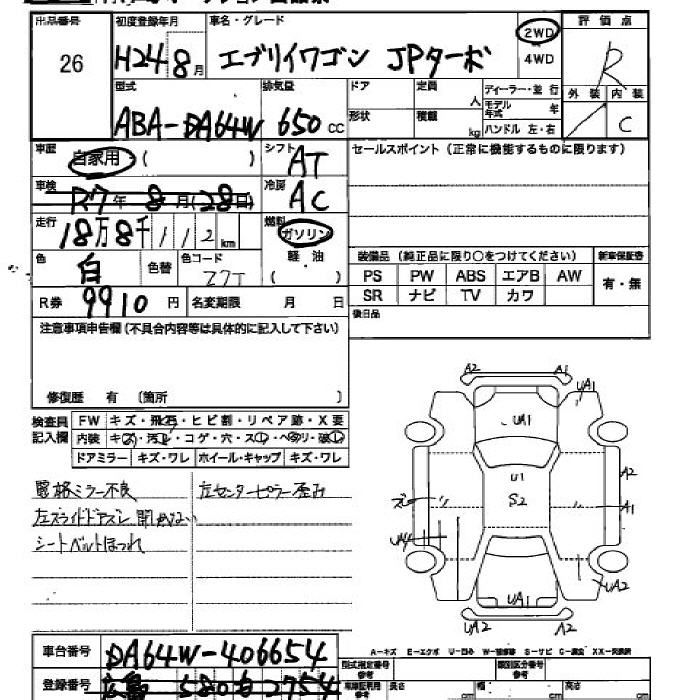 出品番号 初度登録年月 車名・グレード 評価点
26 H24 8月 エブリイワゴン JPターボ 2WD 4WD R
型式 排気量 ドア 定員 人 ディーラー・並行 外装 内装
ABA-DA64W 650cc 形状 積載 kg モデル年式 年 C
ハンドル 左・右
車歴 自家用 ( ) シフト AT セールスポイント(正常に機能するものに限ります)
車検 R7年 8月(28日) 冷房 AC
走行 18万8千112km 燃料 ガソリン
軽油
( )
色 白 色替 色コード Z7T
装備品(純正品に限り○をつけてください) 新車保証書
PS PW ABS エアB AW 有・無
SR ナビ TV カワ
R券 9910円 名変期限 月 日 後日品
注意事項申告欄(不具合内容等は具体的に記入して下さい)
修復歴 有 〔箇所 〕
検査員記入欄 FW キズ・飛石・ヒビ割・リペア跡・X要
内装 キズ・汚レ・コゲ・穴・スレ・ヘタリ・破レ
ドアミラー キズ・ワレ ホイール・キャップ キズ・ワレ
電格ミラー不良 左センターピラー歪み
左スライドドアズレ 開かない
シートベルトほつれ
A2 A1
UA1
UA1
U1
S2
A2
ズレ A1
UA4
UA2
UA1
UA2 A2
車台番号 DA64W-406654
A-キズ E-エクボ U-凹み
型式指定番号 参考 類別区分番号 参考
登録番号 広島 580 2754
長さ cm 幅 cm 高さ cm